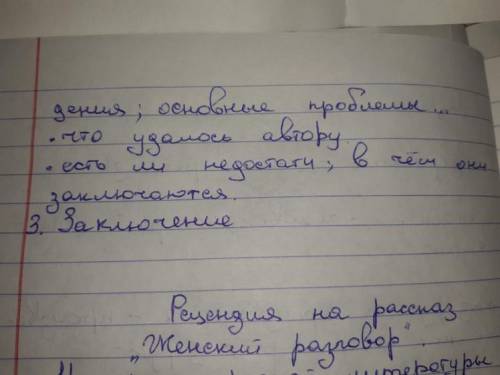 дения; основные проблемы...
• что удалось автору
• есть ли недостати; в чём они
заключаются.
3. Заключение
Рецендия на рассказ
"Женский разговор".
литературы